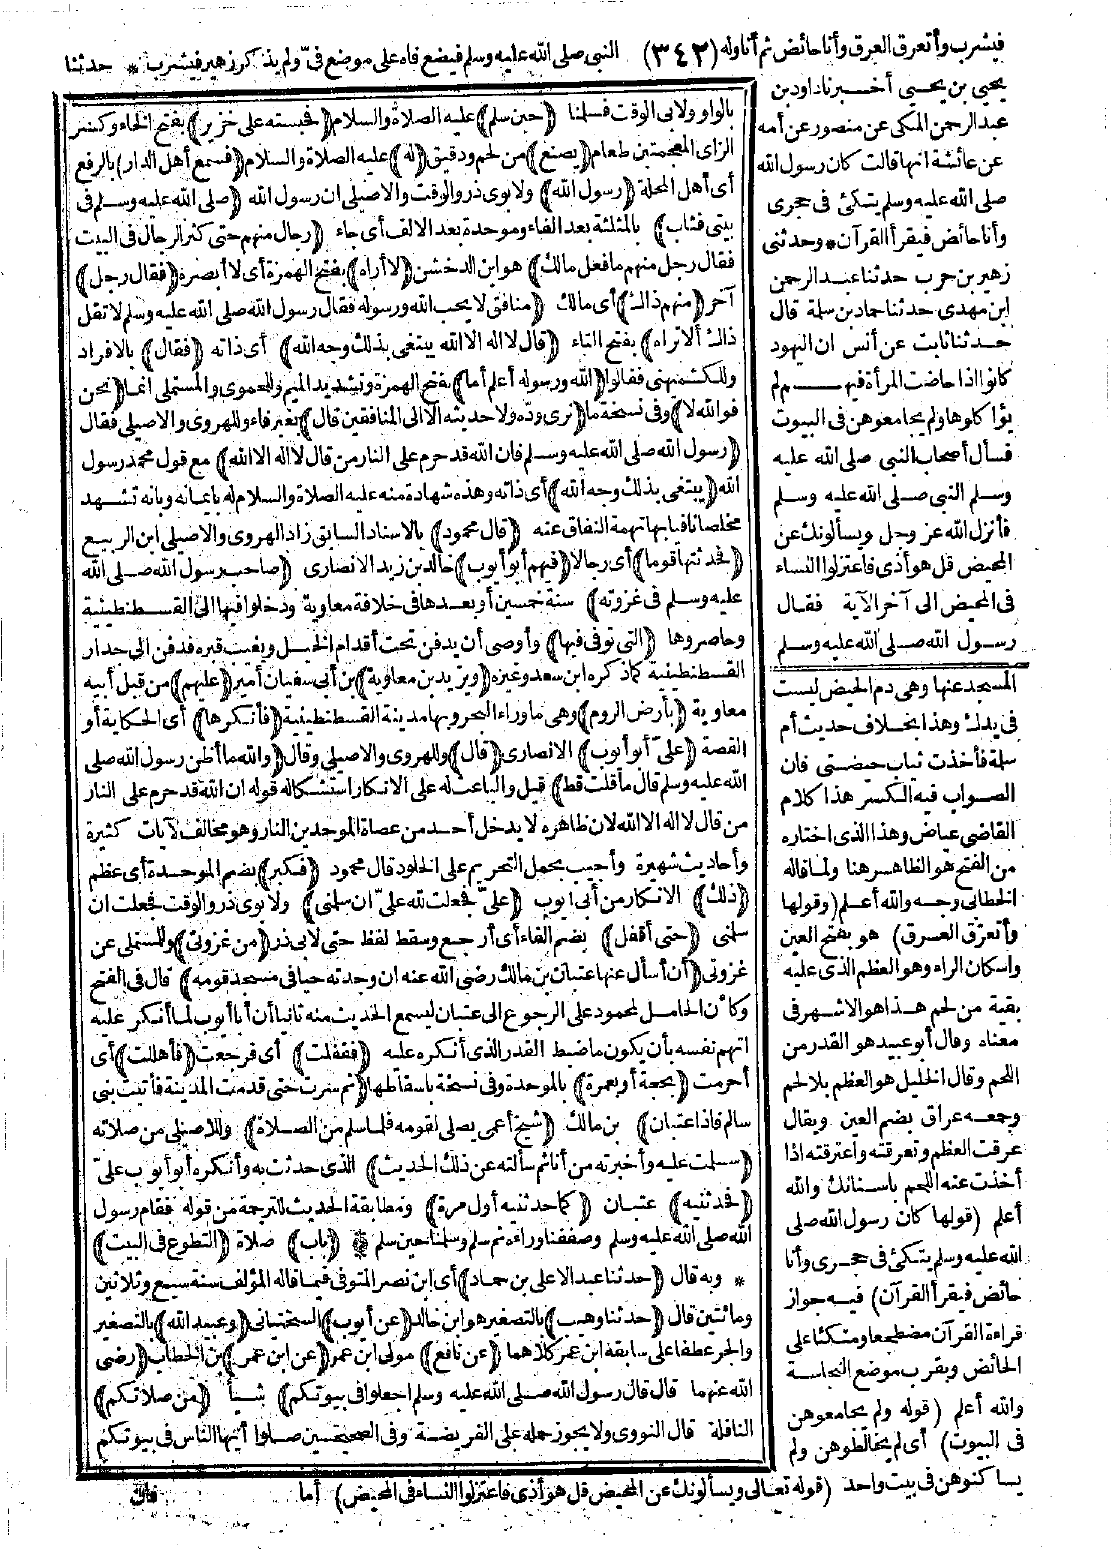 فيشرب وأتعرق العرق وأنا حائض ثم أناوله (٣٤٣) النبى صلى الله عليه وسلم فيضع فاه على موضع فىّ ولم يذكر زهير فيشرب * حدثنا
يحيى بن يحيى أخبرنا داود بن
عبد الرحمن المكى عن منصور عن أمه
عن عائشة انها قالت كان رسول الله
صلى الله عليه وسلم يتكئ فى حجرى
وأنا حائض فيقرأ القرآن * وحدثنى
زهير بن حرب حدثنا عبد الرحمن
ابن مهدى حدثنا حماد بن سلمة قال
حدثنا ثابت عن أنس ان اليهود
كانوا اذا حاضت المرأة فيهم لم
يؤاكلوها ولم يجامعوهن فى البيوت
فسأل أصحاب النبى صلى الله عليه
وسلم النبى صلى الله عليه وسلم
فأنزل الله عز وجل ويسألونك عن
المحيض قل هو أذى فاعتزلوا النساء
فى المحيض الى آخر الآية فقال
رسول الله صلى الله عليه وسلم
المسجد عنها وهى دم الحيض ليست
فى يدك وهذا بخلاف حديث أم
سلمة فأخذت ثياب حيضتى فان
الصواب فيه الكسر هذا كلام
القاضى عياض وهذا الذى اختاره
من الفتح هو الظاهر هنا ولما قاله
الخطابى وجه والله أعلم (وقولها
وأتعرّق العرق) هو بفتح العين
واسكان الراء وهو العظم الذى عليه
بقية من لحم هذا هو الاشهر فى
معناه وقال أبو عبيد هو القدر من
اللحم وقال الخليل هو العظم بلا لحم
وجمعه عراق بضم العين ويقال
عرقت العظم وتعرقته واعترقته اذا
أخذت عنه اللحم باسنانك والله
أعلم (قولها كان رسول الله صلى
الله عليه وسلم يتكئ فى حجرى وأنا
حائض فيقرأ القرآن) فيه جواز
قراءة القرآن مضطجعا ومتكئا على
الحائض وبقرب موضع النجاسة
والله أعلم (قوله ولم يجامعوهن
فى البيوت) أى لم يخالطوهن ولم
يساكنوهن فى بيت واحد (قوله تعالى ويسألونك عن المحيض قل هو أذى فاعتزلوا النساء فى المحيض) أما
بالواو ولابى الوقت فسلمنا (حين سلم) عليه الصلاة والسلام (فحبسته على خزير) بفتح الخاء وكسر
الزاى المعجمتين طعام (يصنع) من لحم ودقيق (له) عليه الصلاة والسلام (فسمع أهل الدار) بالرفع
أى أهل المحلة (رسول الله) ولابوى ذر والوقت والاصيلى ان رسول الله (صلى الله عليه وسلم فى
بيتى فثاب) بالمثلثة بعد الفاء وموحدة بعد الالف أى جاء (رجال منهم حتى كثر الرجال فى البيت
فقال رجل منهم ما فعل مالك) هو ابن الدخشن (لا أراه) بفتح الهمزة أى لا أبصره (فقال رجل)
آخر (منهم ذاك) أى مالك (منافق لا يحب الله ورسوله فقال رسول الله صلى الله عليه وسلم لا تقل
ذاك ألا تراه) بفتح التاء (قال لا اله الا الله يبتغى بذلك وجه الله) أى ذاته (فقال) بالافراد
وللكشميهنى فقالوا (الله ورسوله أعلم أما) بفتح الهمزة وتشديد الميم وللحموى والمستملى انما (نحن
فوالله لا) وفى نسخة ما (نرى ودّه ولا حديثه الا الى المنافقين قال) بغير فاء وللهروى والاصيلى فقال
(رسول الله صلى الله عليه وسلم فان الله قد حرم على النار من قال لا اله الا الله) مع قول محمد رسول
الله (يبتغى بذلك وجه الله) أى ذاته وهذه شهادة منه عليه الصلاة والسلام له بايمانه وبانه تشهد
مخلصا نافيا بها تهمة النفاق عنه (قال محمود) بالاسناد السابق زاد الهروى والاصيلى ابن الربيع
(فحدثتها قوما) أى رجالا (فيهم أبو أيوب) خالد بن زيد الانصارى (صاحب رسول الله صلى الله
عليه وسلم فى غزوته) سنة خمسين أو بعدها فى خلافة معاوية ودخلوا فيها الى القسطنطينية
وحاصروها (التى توفى فيها) وأوصى أن يدفن تحت أقدام الخيل ويغيب قبره فدفن الى جدار
القسطنطينية كما ذكره ابن سعد وغيره (ويزيد بن معاوية) بن أبى سفيان أمير (عليهم) من قبل أبيه
معاوية (بأرض الروم) وهى ما وراء البحر وبها مدينة القسطنطينية (فأنكرها) أى الحكاية أو
القصة (علىّ أبو أيوب) الانصارى (قال) وللهروى والاصيلى وقال (والله ما أظن رسول الله صلى
الله عليه وسلم قال ما قلت قط) قيل والباعث له على الانكار استشكاله قوله ان الله قد حرم على النار
من قال لا اله الا الله لان ظاهره لا يدخل أحد من عصاة الموحدين النار وهو مخالف لآيات كثيرة
وأحاديث شهيرة وأجيب بحمل التحريم على الخلود قال محمود (فكبر) بضم الموحدة أى عظم
(ذلك) الانكار من أبى أيوب (علىّ فجعلت لله علىّ ان سلمنى) ولابوى ذر والوقت فجعلت ان
سلمنى (حتى أقفل) بضم الفاء أى أرجع وسقط لفظ حتى لابى ذر (من غزوتى) وللمستملى عن
غزوتى (أن أسأل عنها عتبان بن مالك رضى الله عنه ان وجدته حيا فى مسجد قومه) قال فى الفتح
وكأن الحامل لمحمود على الرجوع الى عتبان ليسمع الحديث منه ثانيا أن أبا أيوب لما أنكر عليه
اتهم نفسه بأن يكون ما ضبط القدر الذى أنكره عليه (فقفلت) أى فرجعت (فأهللت) أى
أحرمت (بحجة أو بعمرة) بالموحدة وفى نسخة باسقاطها (ثم سرت حتى قدمت المدينة فأتيت بنى
سالم فاذا عتبان) بن مالك (شيخ أعمى يصلى لقومه فلما سلم من الصلاة) وللاصيلى من صلاته
(سلمت عليه وأخبرته من أنا ثم سألته عن ذلك الحديث) الذى حدثت به وأنكره أبو أيوب علىّ
(فحدثنيه) عتبان (كما حدثنيه أول مرة) ومطابقة الحديث للترجمة من قوله فقام رسول
الله صلى الله عليه وسلم وصففنا وراءه ثم سلم وسلمنا حين سلم * (باب) صلاة (التطوع فى البيت)
* وبه قال (حدثنا عبد الاعلى بن حماد) أى ابن نصر المتوفى فيما قاله المؤلف سنة سبع وثلاثين
ومائتين قال (حدثنا وهيب) بالتصغير هو ابن خالد (عن أيوب) السختيانى (وعبيد الله) بالتصغير
والجر عطفا على سابقه ابن عمر كلاهما (عن نافع) مولى ابن عمر (عن ابن عمر) بن الخطاب (رضى
الله عنهما قال قال رسول الله صلى الله عليه وسلم اجعلوا فى بيوتكم) شيأ (من صلاتكم)
النافلة قال النووى ولا يجوز حمله على الفريضة وفى الصحيحين صلوا أيها الناس فى بيوتكم